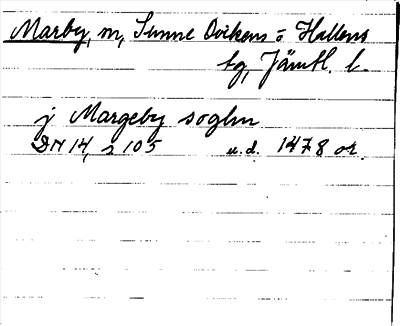 Marby, m, Sunne Ovikens o Hallens
tg, Jämtl. l.
j Margeby soghn
DN 14, s 105 u.d. 1478 or.